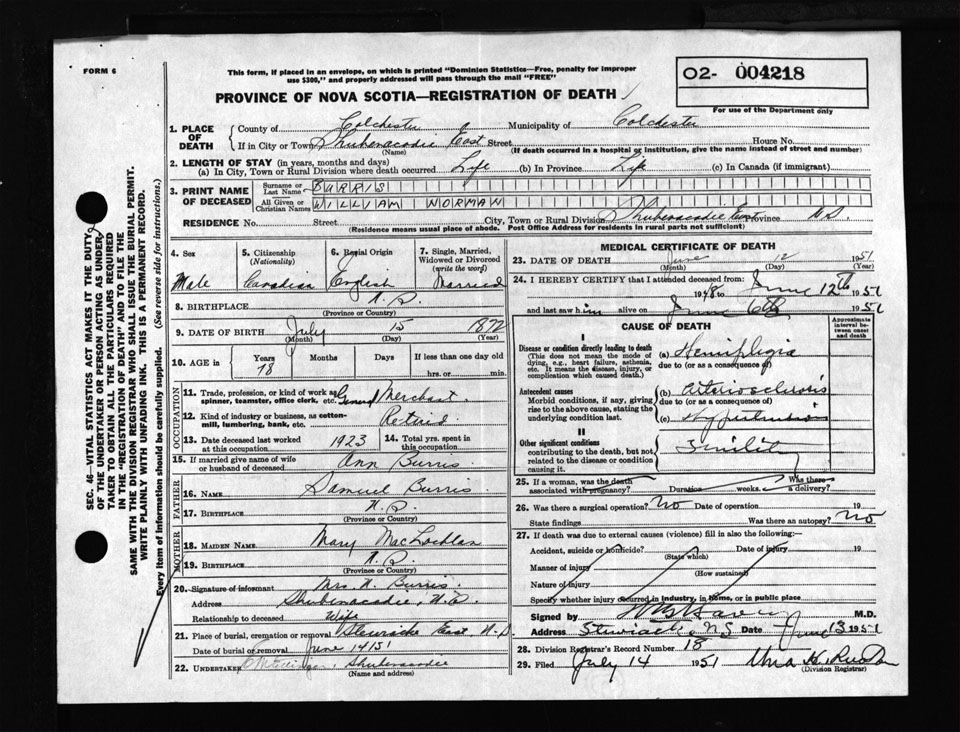 FORM 6
This form, if placed in an envelope, on which is printed "Dominion Statistics—Free, penalty for improper
use $300," and properly addressed will pass through the mail "FREE"
O2- 004218
For use of the Department only
PROVINCE OF NOVA SCOTIA—REGISTRATION OF DEATH
1. PLACE OF DEATH { County of Colchester Municipality of Colchester
If in City or Town Shubenacadie East Street House No.
(Name) (If death occurred in a hospital or institution, give the name instead of street and number)
2. LENGTH OF STAY (in years, months and days)
(a) In City, Town or Rural Division where death occurred Life (b) In Province Life (c) In Canada (if immigrant)
3. PRINT NAME OF DECEASED { Surname or Last Name BURRIS
All Given or Christian Names WILLIAM NORMAN
RESIDENCE No. Street City, Town or Rural Division Shubenacadie East Province N.S.
(Residence means usual place of abode. Post Office Address for residents in rural parts not sufficient)
4. Sex Male
5. Citizenship (Nationality) Canadian
6. Racial Origin English
7. Single, Married, Widowed or Divorced (write the word) Married
8. BIRTHPLACE N.S.
(Province or Country)
9. DATE OF BIRTH July 15 1872
(Month) (Day) (Year)
10. AGE in { Years 78 Months Days If less than one day old
hrs. or min.
OCCUPATION
11. Trade, profession, or kind of work as spinner, teamster, office clerk, etc. General Merchant
12. Kind of industry or business, as cotton-mill, lumbering, bank, etc. Retired
13. Date deceased last worked at this occupation 1923 14. Total yrs. spent in this occupation
15. If married give name of wife or husband of deceased Ann Burris
FATHER
16. NAME Samuel Burris
17. BIRTHPLACE N.S.
(Province or Country)
MOTHER
18. MAIDEN NAME Mary MacLochlan
19. BIRTHPLACE N.S.
(Province or Country)
20. Signature of informant Mrs. N. Burris.
Address Shubenacadie, N.S.
Relationship to deceased Wife
21. Place of burial, cremation or removal East N.S.
Date of burial or removal June 14/51
22. UNDERTAKER Shubenacadie
(Name and address)
MEDICAL CERTIFICATE OF DEATH
23. DATE OF DEATH June 12 1951
(Month) (Day) (Year)
24. I HEREBY CERTIFY that I attended deceased from:
1948 to June 12th 1951
and last saw him alive on June 6th 1951
CAUSE OF DEATH
Approximate interval between onset and death
I
Disease or condition directly leading to death
(This does not mean the mode of dying, e.g., heart failure, asthenia, etc. It means the disease, injury, or complication which caused death.)
(a) Hemiplegia
due to (or as a consequence of)
Antecedent causes
Morbid conditions, if any, giving rise to the above cause, stating the underlying condition last.
(b) Arteriosclerosis
due to (or as a consequence of)
(c) Hypertension
II
Other significant conditions
contributing to the death, but not related to the disease or condition causing it.
Senility
25. If a woman, was the death associated with pregnancy? Duration weeks. Was there a delivery?
26. Was there a surgical operation? No Date of operation 19
State findings Was there an autopsy? No
27. If death was due to external causes (violence) fill in also the following:—
Accident, suicide or homicide? Date of injury 19
(State which)
Manner of injury
(How sustained)
Nature of injury
Specify whether injury occurred in industry, in home, or in public place
Signed by M.D.
Address Stewiacke, NS Date June 13 1951
28. Division Registrar's Record Number 18
29. Filed July 14 1951
(Division Registrar)
SEC. 46—VITAL STATISTICS ACT MAKES IT THE DUTY
OF THE UNDERTAKER OR PERSON ACTING AS UNDERTAKER
TO OBTAIN ALL THE PARTICULARS REQUIRED
IN THE "REGISTRATION OF DEATH" AND TO FILE THE
SAME WITH THE DIVISION REGISTRAR WHO SHALL ISSUE THE BURIAL PERMIT.
WRITE PLAINLY WITH UNFADING INK. THIS IS A PERMANENT RECORD.
Every item of information should be carefully supplied. (See reverse side for instructions.)